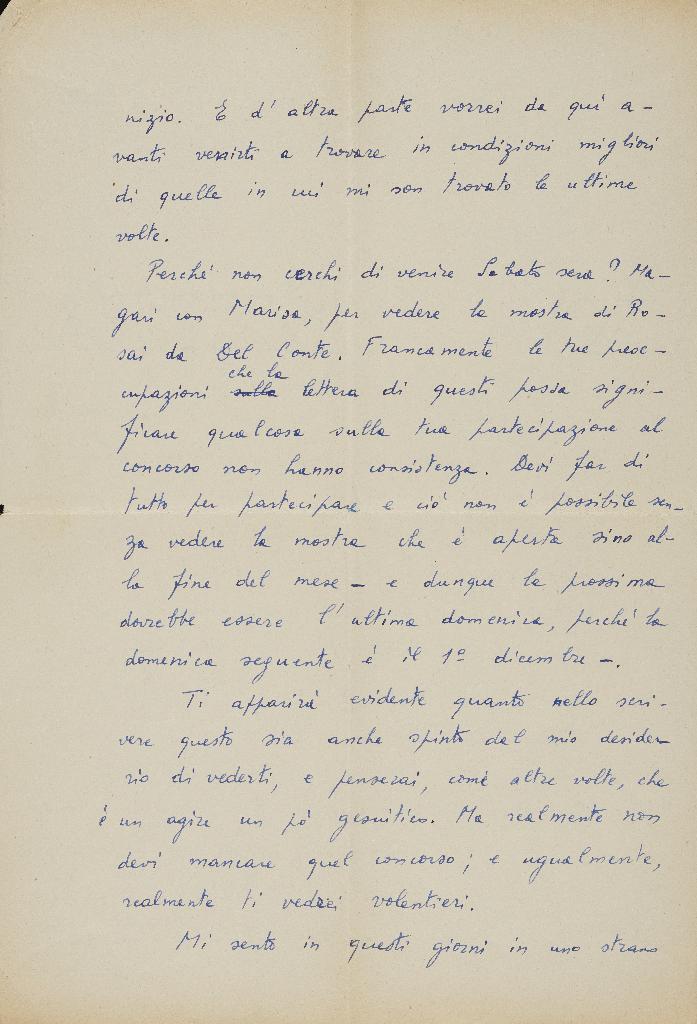 nizio. E d'altra parte vorrei da qui a-
vanti venirti a trovare in condizioni migliori
di quelle in cui mi son trovato le ultime
volte.
Perché non cerchi di venire Sabato sera? Ma-
gari con Marisa, per vedere la mostra di Ro-
sai da Del Conte. Francamente le tue preoc-
che la
cupazioni sulla lettera di questi possa signi-
ficare qualcosa sulla tua partecipazione al
concorso non hanno consistenza. Devi far di
tutto per partecipare e ciò non è possibile sen-
za vedere la mostra che è aperta sino al-
la fine del mese – e dunque la prossima
dovrebbe essere l'ultima domenica, perché la
domenica seguente è il 1º dicembre –.
Ti apparirà evidente quanto nello scri-
vere questo sia anche spinto dal mio deside-
rio di vederti, e penserai, come altre volte, che
è un agire un pò gesuitico. Ma realmente non
devi mancare quel concorso; e ugualmente,
realmente ti vedrei volentieri.
Mi sento in questi giorni in uno strano